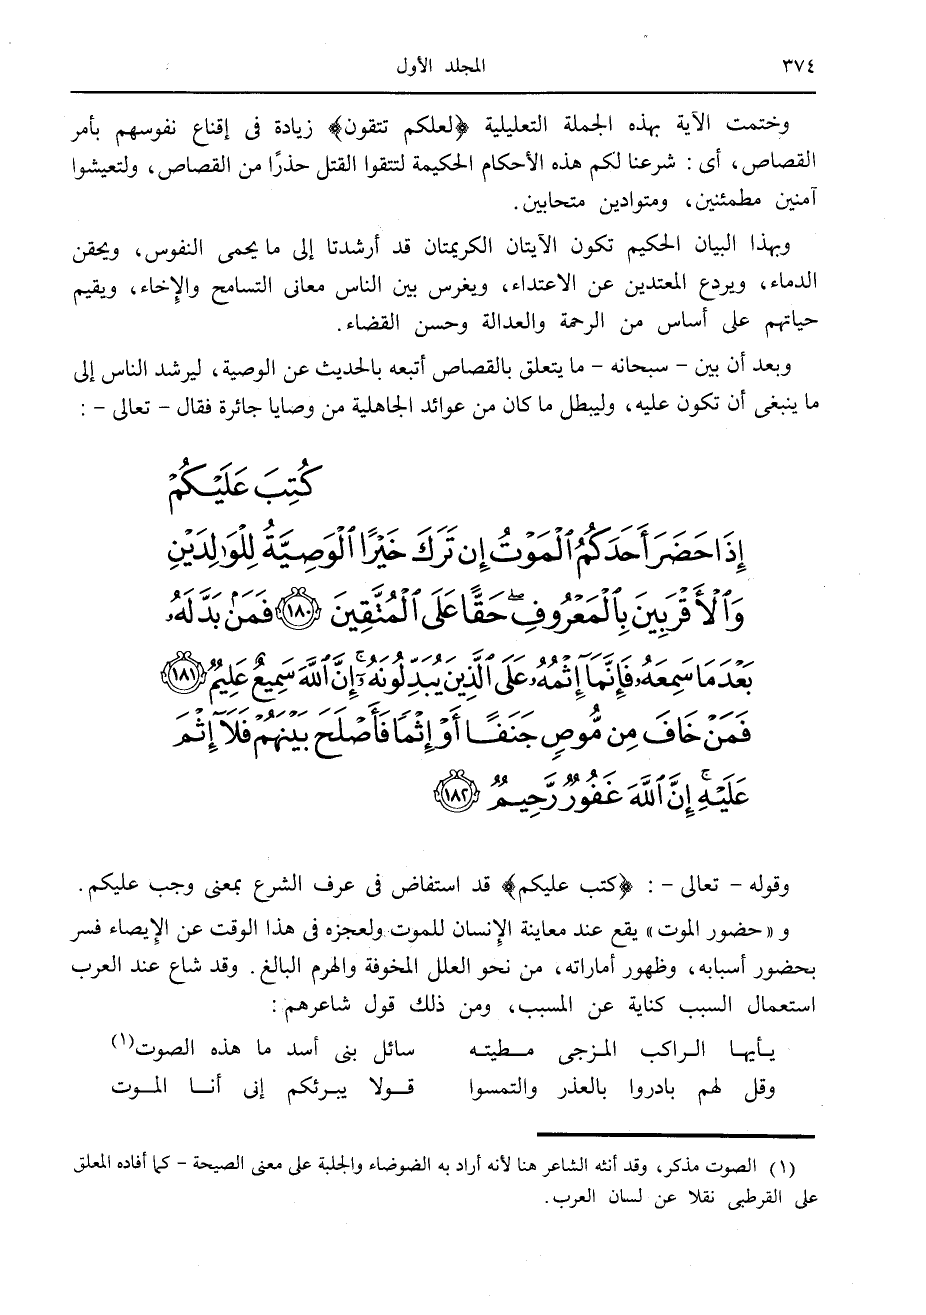 ٣٧٤ المجلد الأول
وختمت الآية بهذه الجملة التعليلية ﴿لعلكم تتقون﴾ زيادة فى إقناع نفوسهم بأمر
القصاص، أى : شرعنا لكم هذه الأحكام الحكيمة لتتقوا القتل حذرًا من القصاص، ولتعيشوا
آمنين مطمئنين، ومتوادين متحابين.
وبهذا البيان الحكيم تكون الآيتان الكريمتان قد أرشدتا إلى ما يحمى النفوس، ويحقن
الدماء، ويردع المعتدين عن الاعتداء، ويغرس بين الناس معانى التسامح والإخاء، ويقيم
حياتهم على أساس من الرحمة والعدالة وحسن القضاء.
وبعد أن بين - سبحانه - ما يتعلق بالقصاص أتبعه بالحديث عن الوصية، ليرشد الناس إلى
ما ينبغى أن تكون عليه، وليبطل ما كان من عوائد الجاهلية من وصايا جائرة فقال - تعالى - :
كُتِبَ عَلَيْكُمْ
إِذَا حَضَرَ أَحَدَكُمُ ٱلْمَوْتُ إِن تَرَكَ خَيْرًا ٱلْوَصِيَّةُ لِلْوَٰلِدَيْنِ
وَٱلْأَقْرَبِينَ بِٱلْمَعْرُوفِ ۖ حَقًّا عَلَى ٱلْمُتَّقِينَ ١٨٠ فَمَنۢ بَدَّلَهُۥ
بَعْدَ مَا سَمِعَهُۥ فَإِنَّمَآ إِثْمُهُۥ عَلَى ٱلَّذِينَ يُبَدِّلُونَهُۥٓ ۚ إِنَّ ٱللَّهَ سَمِيعٌ عَلِيمٌ ١٨١
فَمَنْ خَافَ مِن مُّوصٍ جَنَفًا أَوْ إِثْمًا فَأَصْلَحَ بَيْنَهُمْ فَلَآ إِثْمَ
عَلَيْهِ ۚ إِنَّ ٱللَّهَ غَفُورٌ رَّحِيمٌ ١٨٢
وقوله - تعالى - : ﴿كتب عليكم﴾ قد استفاض فى عرف الشرع بمعنى وجب عليكم.
و «حضور الموت» يقع عند معاينة الإنسان للموت ولعجزه فى هذا الوقت عن الإيصاء فسر
بحضور أسبابه، وظهور أماراته، من نحو العلل المخوفة والهرم البالغ. وقد شاع عند العرب
استعمال السبب كناية عن المسبب، ومن ذلك قول شاعرهم :
يأيها الراكب المزجى مطيته سائل بنى أسد ما هذه الصوت(١)
وقل لهم بادروا بالعذر والتمسوا قولا يبرئكم إنى أنا الموت
(١) الصوت مذكر، وقد أنثه الشاعر هنا لأنه أراد به الضوضاء والجلبة على معنى الصيحة - كما أفاده المعلق
على القرطبى نقلا عن لسان العرب.